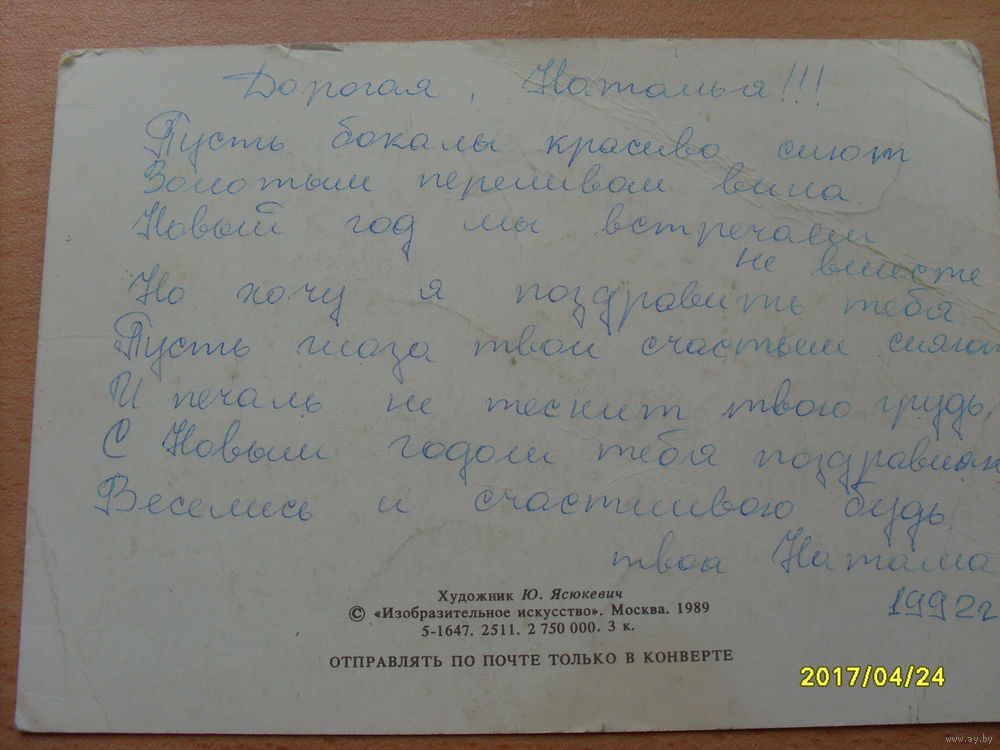 Дорогая, Наталья!!!
Пусть бокалы красиво сияют
Золотым переливом вина.
Новый год мы встречаем
не вместе
Но хочу я поздравить тебя.
Пусть глаза твои счастьем сияют
И печаль не теснит твою грудь,
С Новым годом тебя поздравляю
Веселись и счастливою будь.
твоя Наташа
1992г
Художник Ю. Ясюкевич
© «Изобразительное искусство». Москва. 1989
5-1647. 2511. 2 750 000. 3 к.
ОТПРАВЛЯТЬ ПО ПОЧТЕ ТОЛЬКО В КОНВЕРТЕ
2017/04/24
www.ay.by